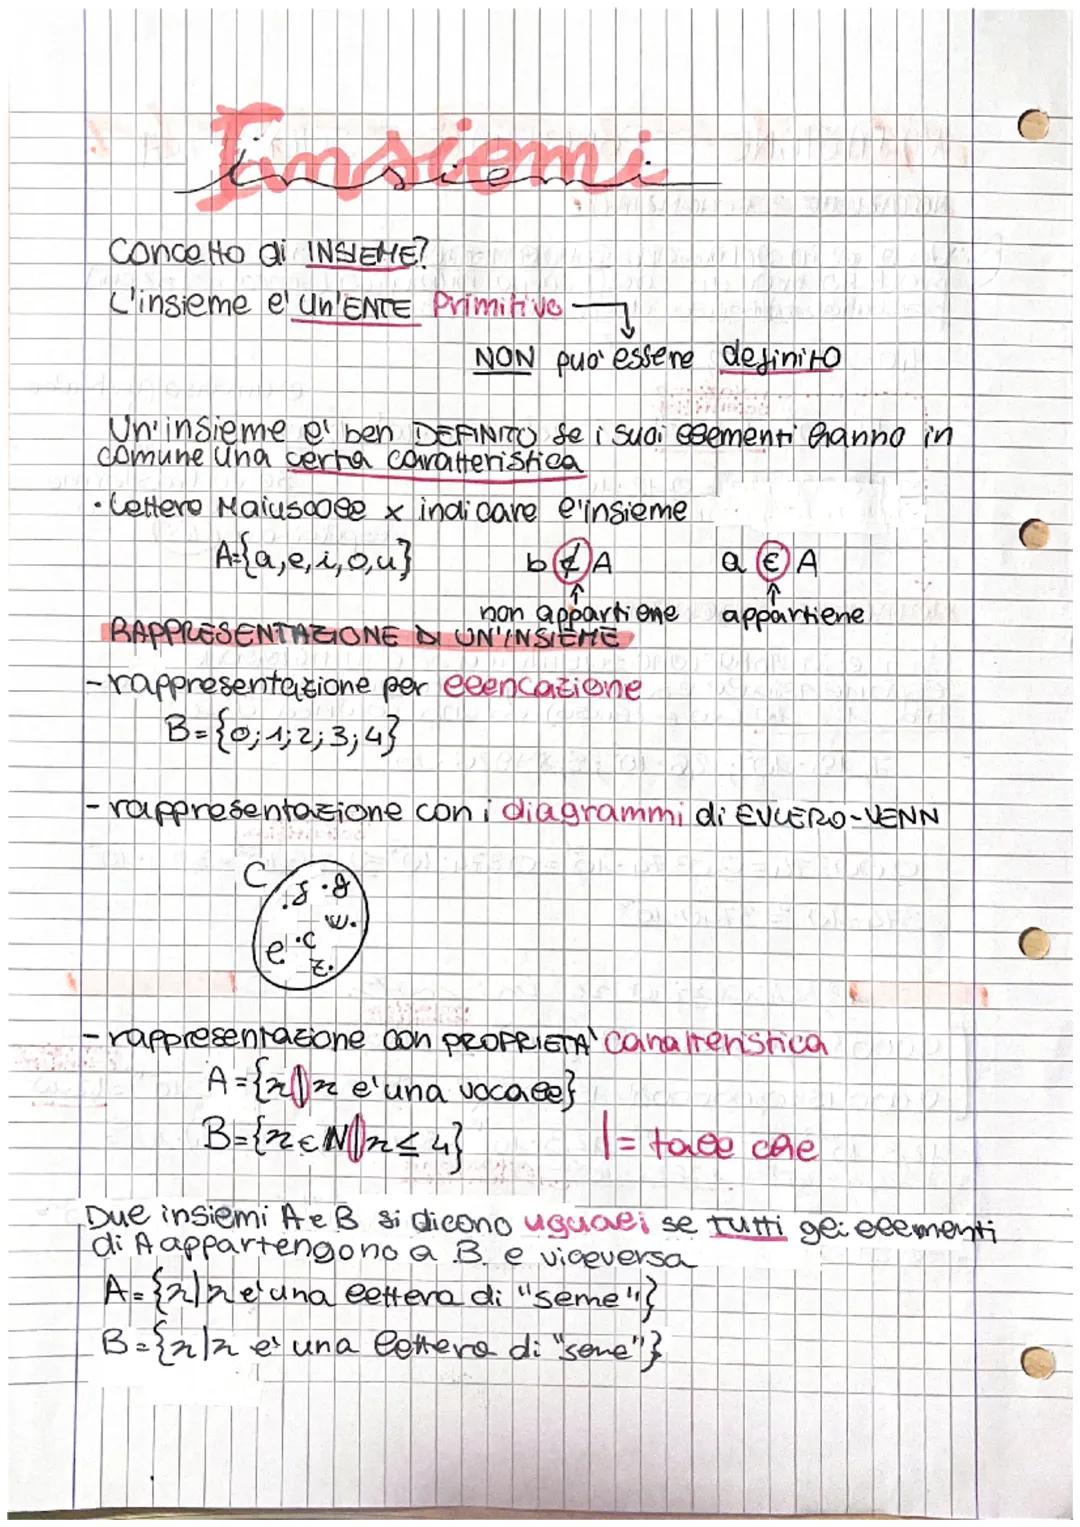 Insiemi
Concetto di INSIEME?
L'insieme e' un'ENTE Primitivo
NON puo' essere definito
Un'insieme e' ben DEFINITO se i suoi elementi hanno in
comune una certa caratteristica
• Lettere Maiuscole x indicare l'insieme
A={a,e,i,o,u} b ∉ A a ∈ A
non appartiene appartiene
RAPPRESENTAZIONE DI UN'INSIEME
- rappresentazione per elencazione
B={0;1;2;3;4}
- rappresentazione con i diagrammi di EULERO-VENN
C
.f .g
w.
e .c
z.
- rappresentazione con PROPRIETA' caratteristica
A={x|x e' una vocale}
B={x∈N|x≤4} |= tale che
Due insiemi A e B si dicono uguali se tutti gli elementi
di A appartengono a B e viceversa
A={x|x e' una lettera di "seme"}
B={x|x e' una lettera di "sene"}